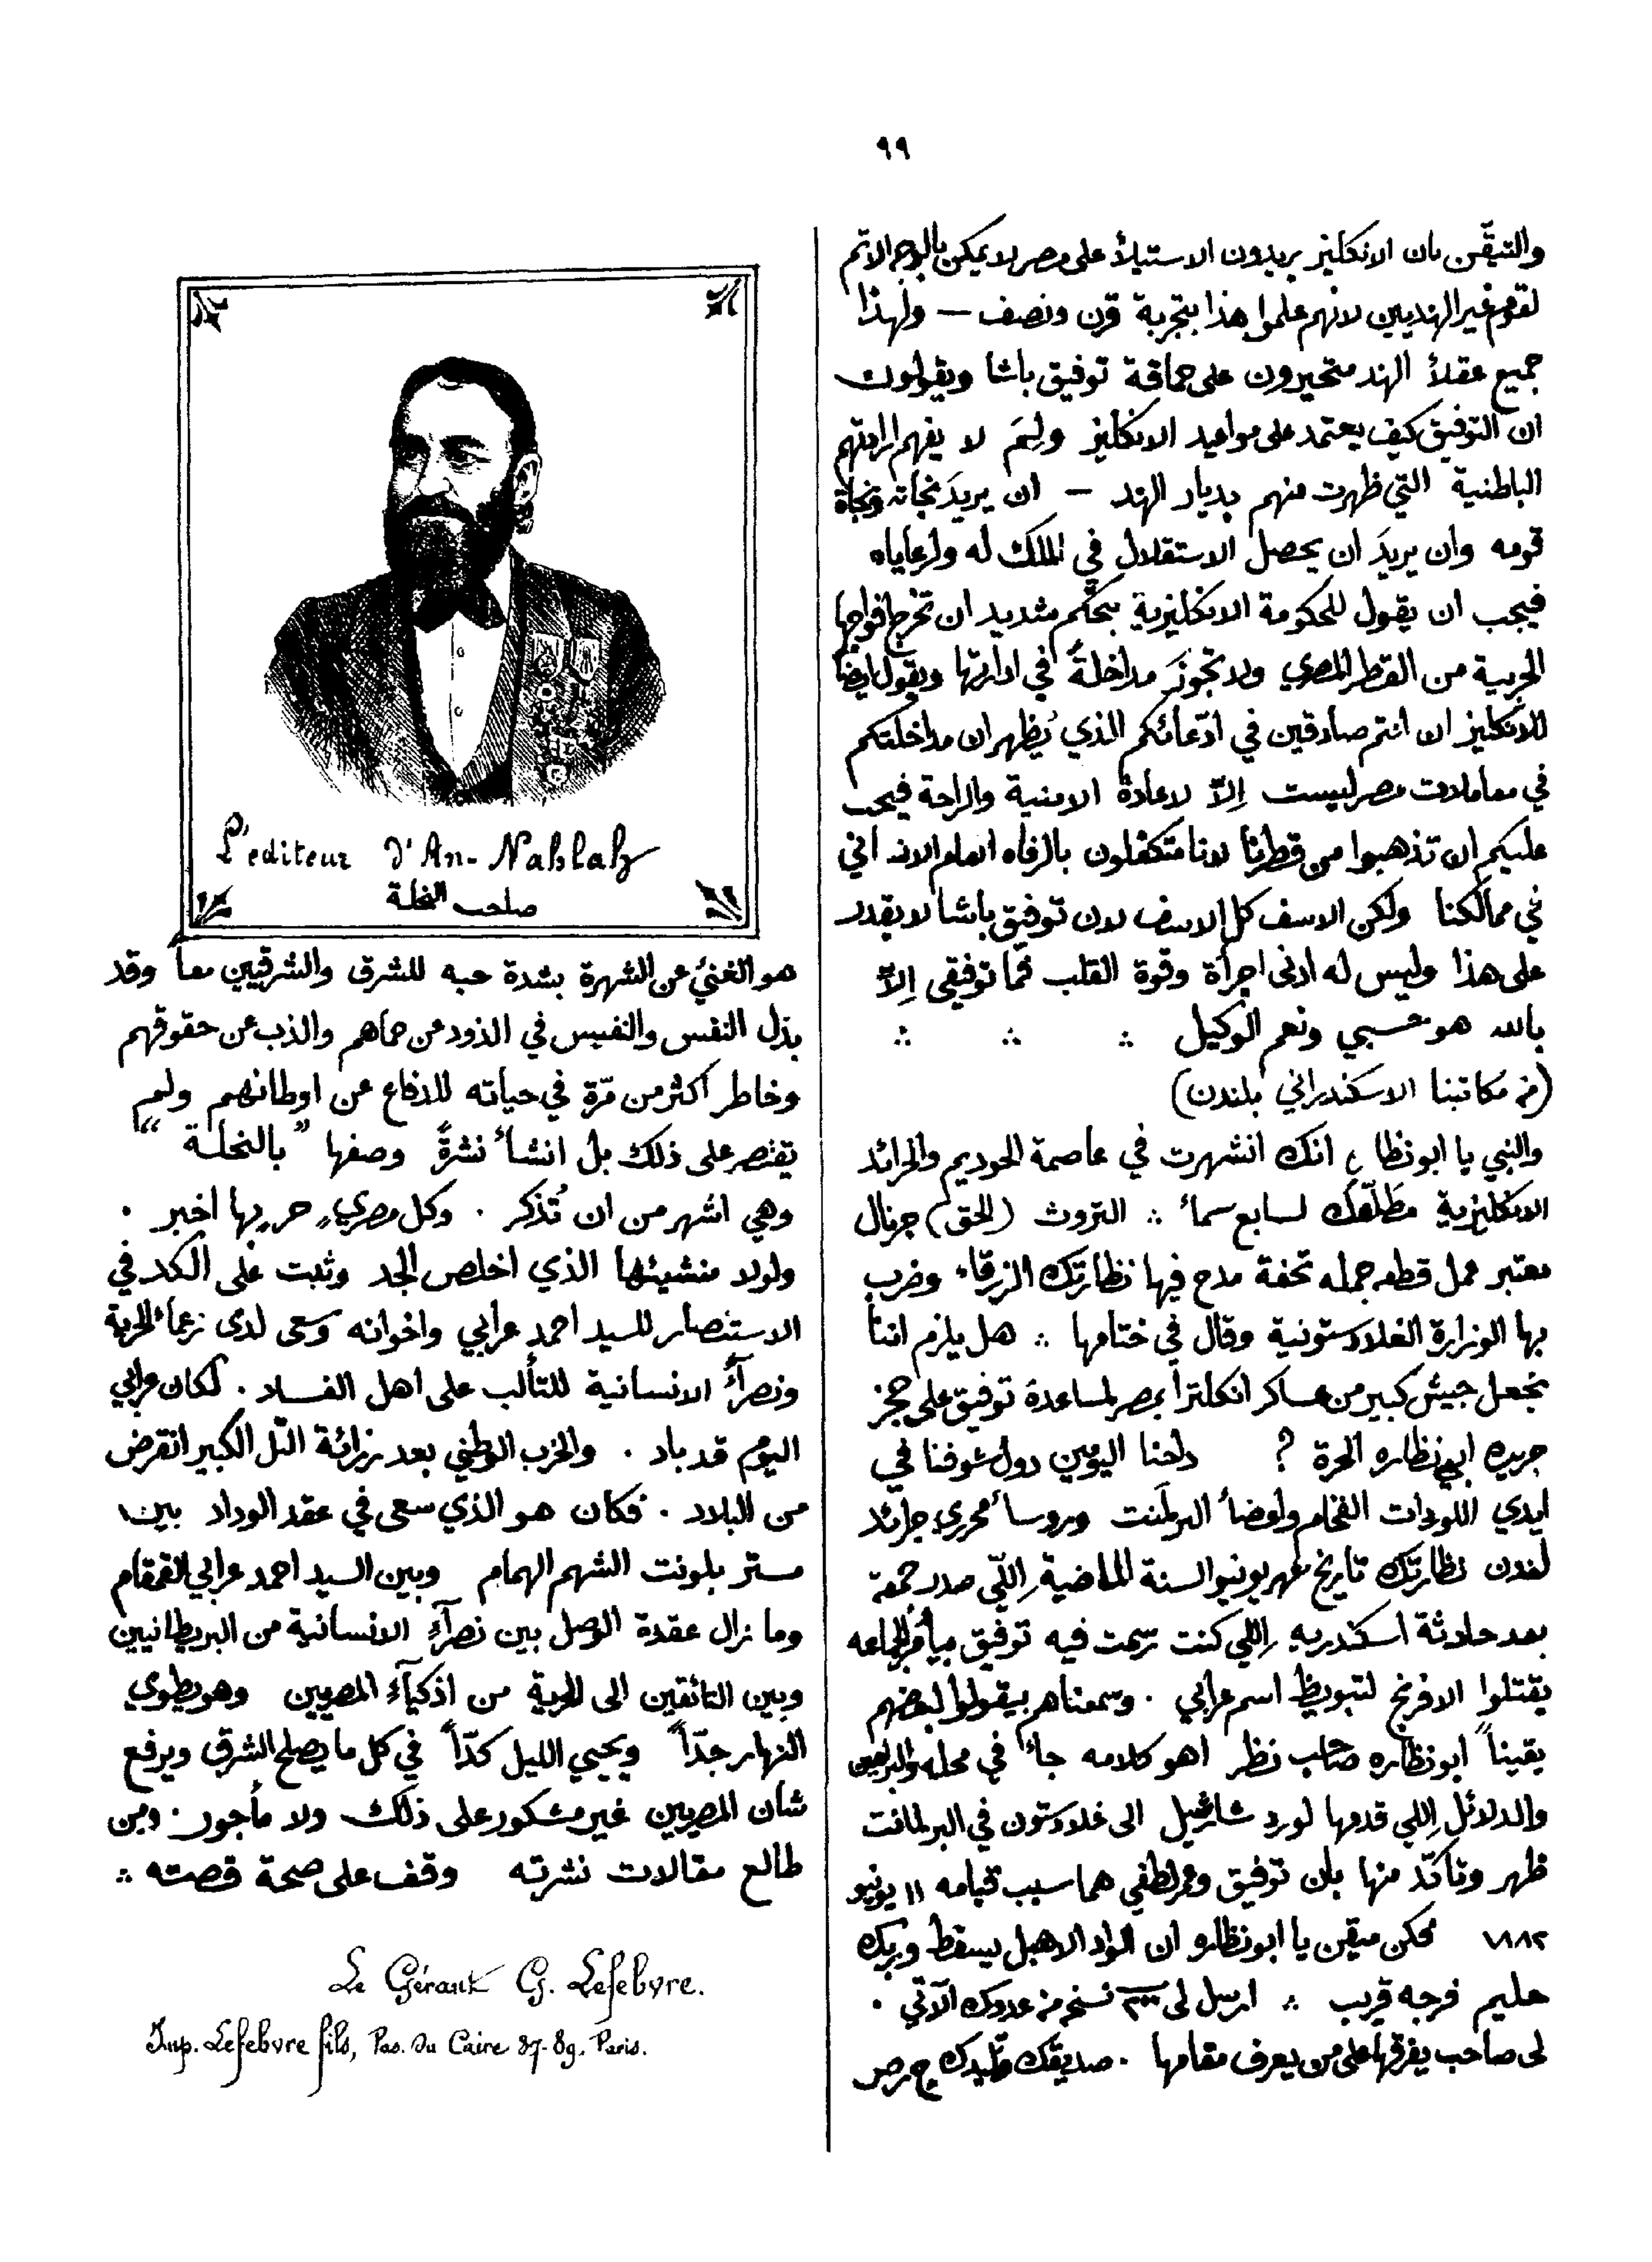 ٩٩
والتيقّن بان الانكليز يريدون الاستيلاٴ على مصر لا يمكن بالوجه الاتم
لقوم غير الهنديين لانهم علموا هذا بتجربة قرن ونصف — ولهذا
جميع عقلاٴ الهند متحيرون على حماقة توفيق باشا ويقولون
ان التوفيق كيف يعتمد على مواعيد الانكليز ولِمَ لا يفهم ارادتهم
الباطنية التي ظهرت منهم بديار الهند — ان يريدَ نجاته ونجاة
قومه وان يريدَ ان يحصل الاستقلال في الملك له ولرعاياه
فيجب ان يقول للحكومة الانكليزية بتحكّم شديد ان تخرج افواجها
الحربية من القطر المصري ولا تجوّنَ مداخلةً في ادارتها ويقول ايضا
للانكليز ان انتم صادقين في ادّعائكم الذي يُظهر ان مداخلتكم
في معاملات مصر ليست اِلاّ لاعادة الامنية والراحة فيجب
عليكم ان تذهبوا من قطرنا لاننا متكفلون بالرفاه العام الان
في ممالكنا ولكن الاسف كل الاسف لان توفيق باشا لا يقدر
على هذا وليس له ادنى اجرأة وقوة القلب فمّا توفقى اِلاّ
بالله هو حسبي ونعم الوكيل ∴ ∴ ∴
(من مكاتبنا الاسكندراني بلندن)
والنبي يا ابو نظاره انك انشهرت في عاصمة الحوديم والجرائد
الانكليزية مَطلّعَك لسابع سماٴ ∴ التروث (الحق) جرنال
معتبر عمل قطعه جمله تحفة مدح فيها نظارتك الزرقاء وضرب
بها الوزارة الغلادستونية وقال في ختامها ∴ هل يلزم اننا
نجعل جيش كبير من عساكر انكلترا بمصر لمساعدة توفيق على حجز
جريدة ابي نظاره الحرة ? داحنا اليومين دول شوفنا في
ايدي اللوردات الفخام واعضاٴ البرلمنت وروساٴ محرري جرائد
لندن نظارتك تاريخ شهر يونيو السنة الماضية اِللّي صدر جمعة
بعد حادثة اسكندريه اِللي كنت رسمت فيه توفيق بيأمر الجماعه
يقتلوا الافرنج لتبويظ اسم عرابي . وسمعناهم بيقولوا لبعضهم
يقيناً ابو نظاره صاحب نظر اهو كلامه جاٴ في محله والبراهين
والدلائل اِللي قدمها لورد شاتشيل الى غلادستون في البرلمانت
ظهر وتاكّد منها بان توفيق وعمر لطفي هما سبب قيامه ١١ يونيو
١٨٨٢ ممكن متيقن يا ابو نظاره ان الواد الاهبل يسقط ويركب
حليم فرجه قريب ∴ ارسل لى نسخه من عددك الآتي .
لى صاحب يفرقها على من يعرف مقامها . صديقك
L'editeur d'An-Nahlah
صاحب النحلة
هو الغنيُّ عن الشهرة بشدة حبه للشرق والشرقيين معاً وقد
بذل النفس والنفيس في الذود عن حماهم والذب عن حقوقهم
وخاطر اكثر من مرّة في حياته للدفاع عن اوطانهم ولم
يقتصر على ذلك بل انشاٴ نشرةً وصفها "بالنحلة"
وهي اشهر من ان تُذكر . وكل مصريٍ حر بها اخبر .
ولولا منشيئها الذي اخلص الجد وثبت على الكد في
الاستنصار للسيد احمد عرابي واخوانه وسعى لدى زعماٴ الحرية
ونصرآٴ الانسانية للتألب على اهل الفساد . لكان عرابي
اليوم قد باد . والحزب الوطني بعد رزائة التل الكبير انقرض
من البلاد . فكان هو الذي سعى في عقد الوداد بين
مستر بلونت الشهم الهمام وبين السيد احمد عرابي القمقام
وما زال عقدة الوصل بين نصرآءِ الانسانية من البريطانيين
وبين التائقين الى الحرية من اذكيآء المصريين وهو يطوي
النهار جدّاً ويحيي الليل كدّاً في كل ما يصلح الشرق ويرفع
شان المصريين غير مشكور على ذلك ولا مأجور . ومن
طالع مقالات نشرته وقف على صحة قصته ∴
Le Gérant G. Lefebvre.
Imp. Lefebvre fils, Pas. du Caire 87-89. Paris.